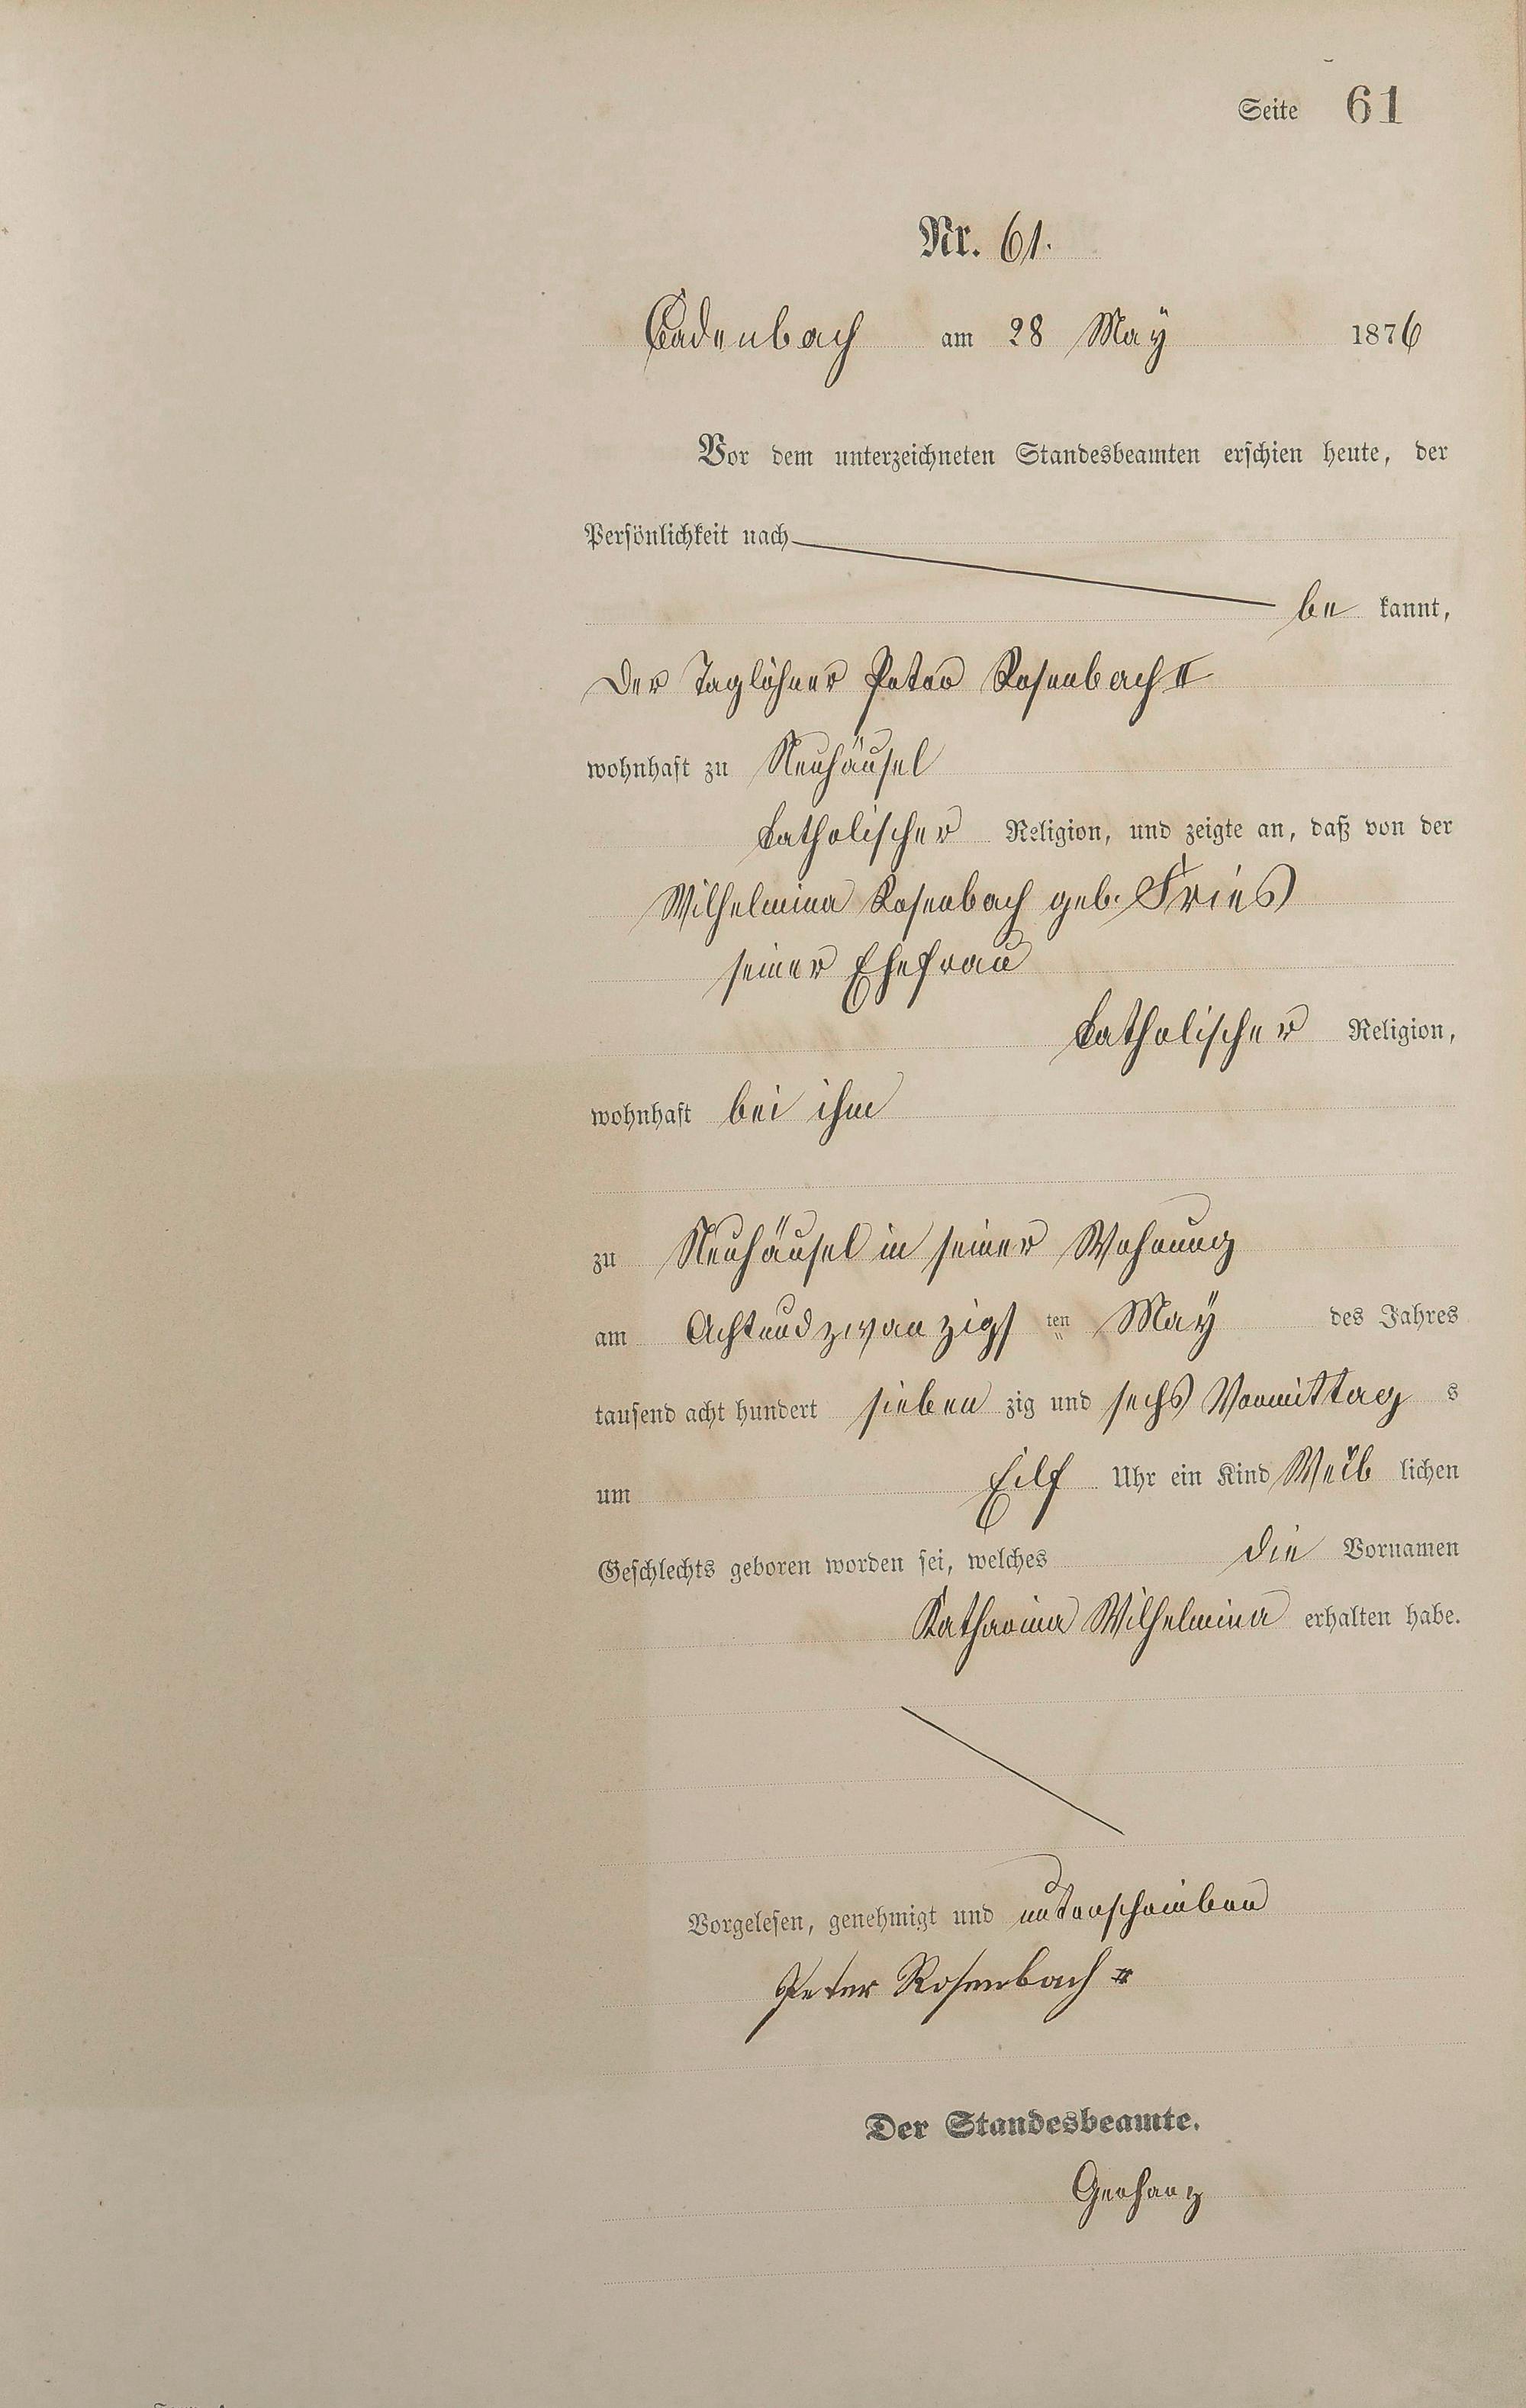 Seite 61
Nr. 61.
Cadenbach am 28 May 1876
Vor dem unterzeichneten Standesbeamten erschien heute, der
Persönlichkeit nach
be kannt,
Der Taglöhner Peter Rosenbach II
wohnhaft zu Neuhäusel
katholischer Religion, und zeigte an, daß von der
Wilhelmina Rosenbach geb. Fries
seiner Ehefrau
katholischer Religion,
wohnhaft bei ihm
zu Neuhäusel in seiner Wohnung
am Achtundzwanzigs ten May des Jahres
tausend acht hundert sieben zig und sechs Vormittag s
um Eilf Uhr ein Kind Weib lichen
Geschlechts geboren worden sei, welches die Vornamen
Katharina Wilhelmina erhalten habe.
Vorgelesen, genehmigt und unterschrieben
Peter Rosenbach II
Der Standesbeamte.
Gerharz